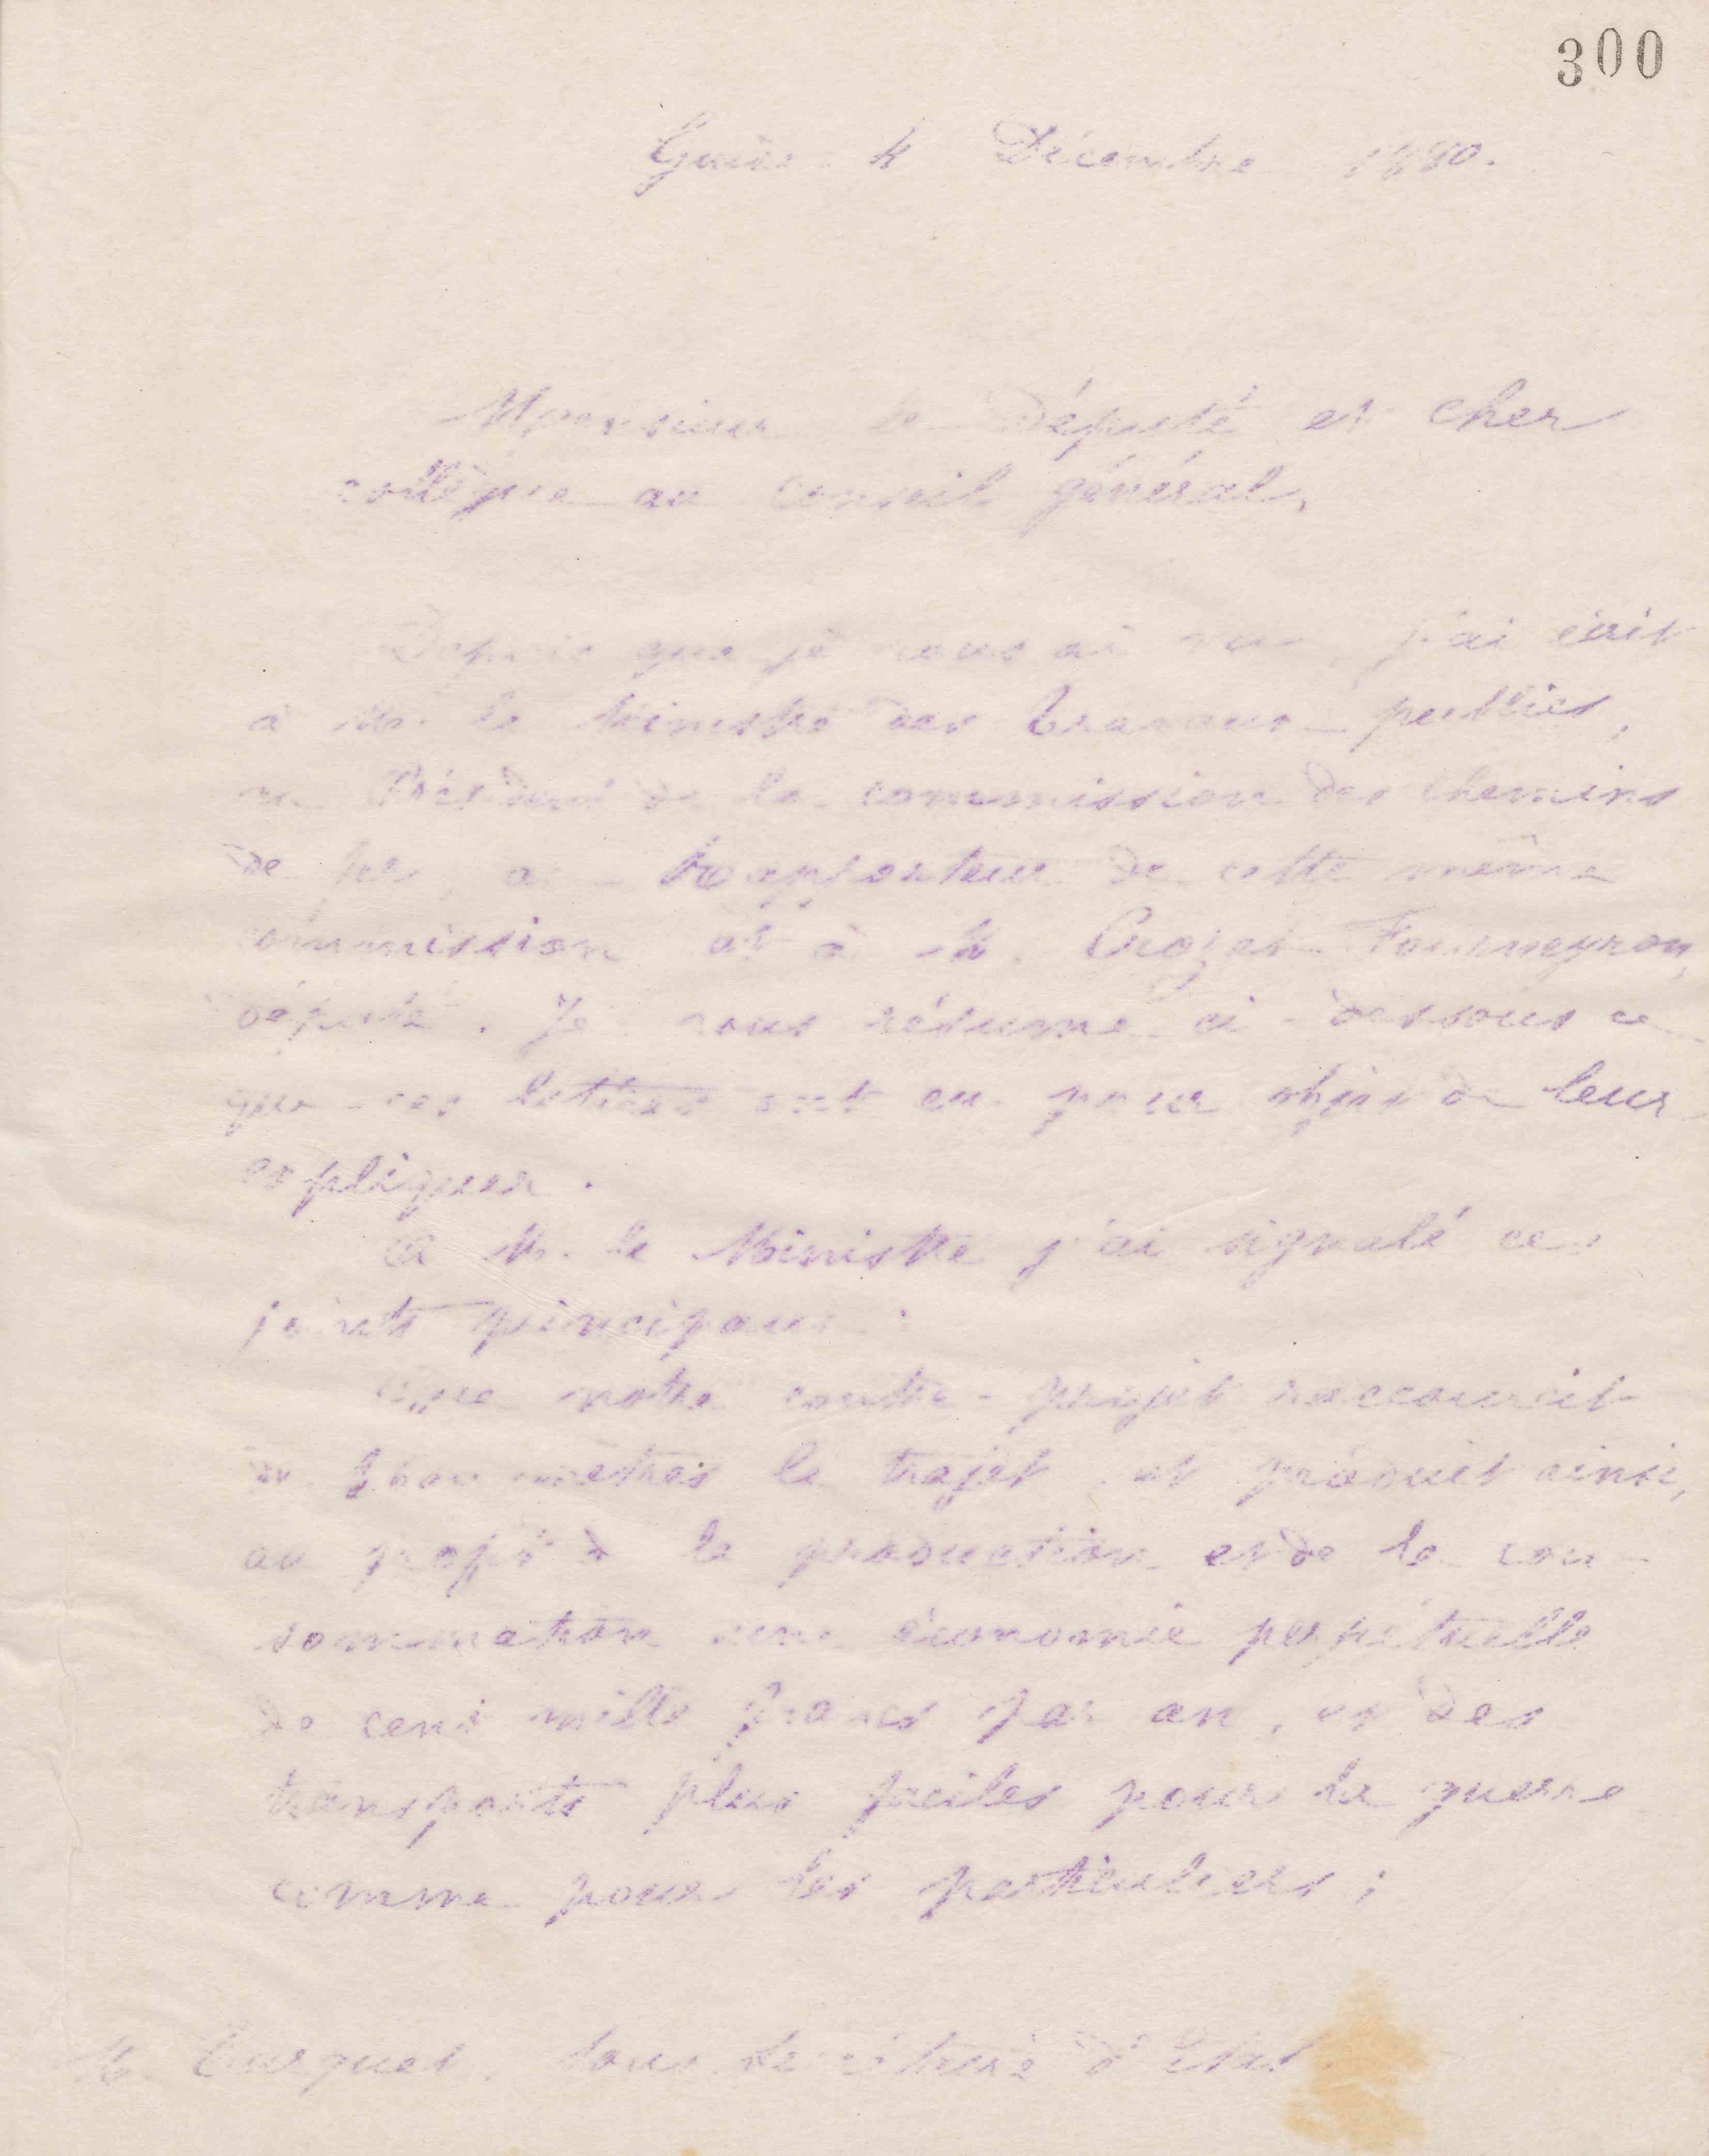 300
Guise 4 Décembre 1880.
Monsieur le Député et cher
collègue au conseil général,
Depuis que je vous ai vu, j'ai écrit
à M. le Ministre des Travaux publics,
au Président de la commission des chemins
de fer, au Rapporteur de cette même
commission et à M. Crozet-Fourneyron,
député. Je vous résume ci-dessous ce
que ces lettres ont eu pour objet de leur
expliquer.
A M. le Ministre j'ai signalé ces
points principaux :
Que notre contre-projet raccourcit
de mètres le trajet et produit ainsi,
au profit de la production et de la con-
sommation une économie perpétuelle
de cent mille francs par an, et des
transports plus faciles pour la guerre
comme pour les particuliers ;
M. Turquet, Sous-Secrétaire d'Etat